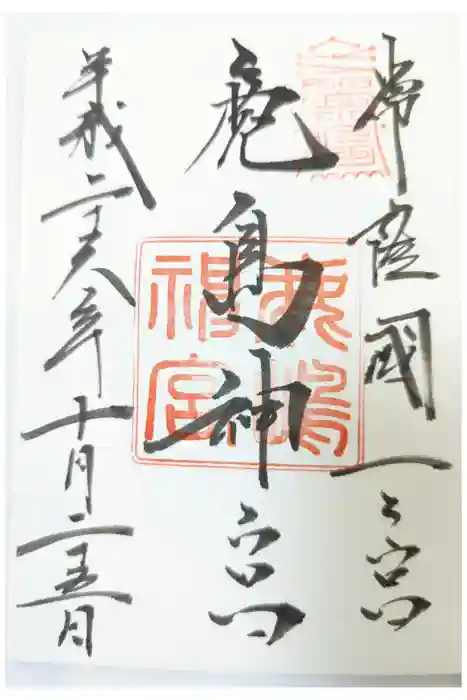 常陸國一之宮
鹿島神宮
鹿嶋
神宮
平成二十八年十月二十五日